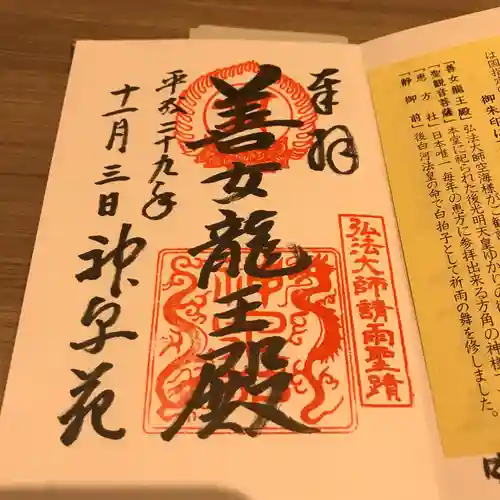 奉拝
弘法大師請雨聖蹟
善女龍王殿
平成二十九年
十一月三日 神泉苑
御朱印
「善女龍王殿」弘法大師空海様が
「聖観音菩薩」本堂に祀られた後光明天皇ゆかりの
「恵方社」日本唯一、毎年の恵方に参拝出来る方角の神様
「静御前」後白河法皇の命で白拍子として祈雨の舞を修しました。